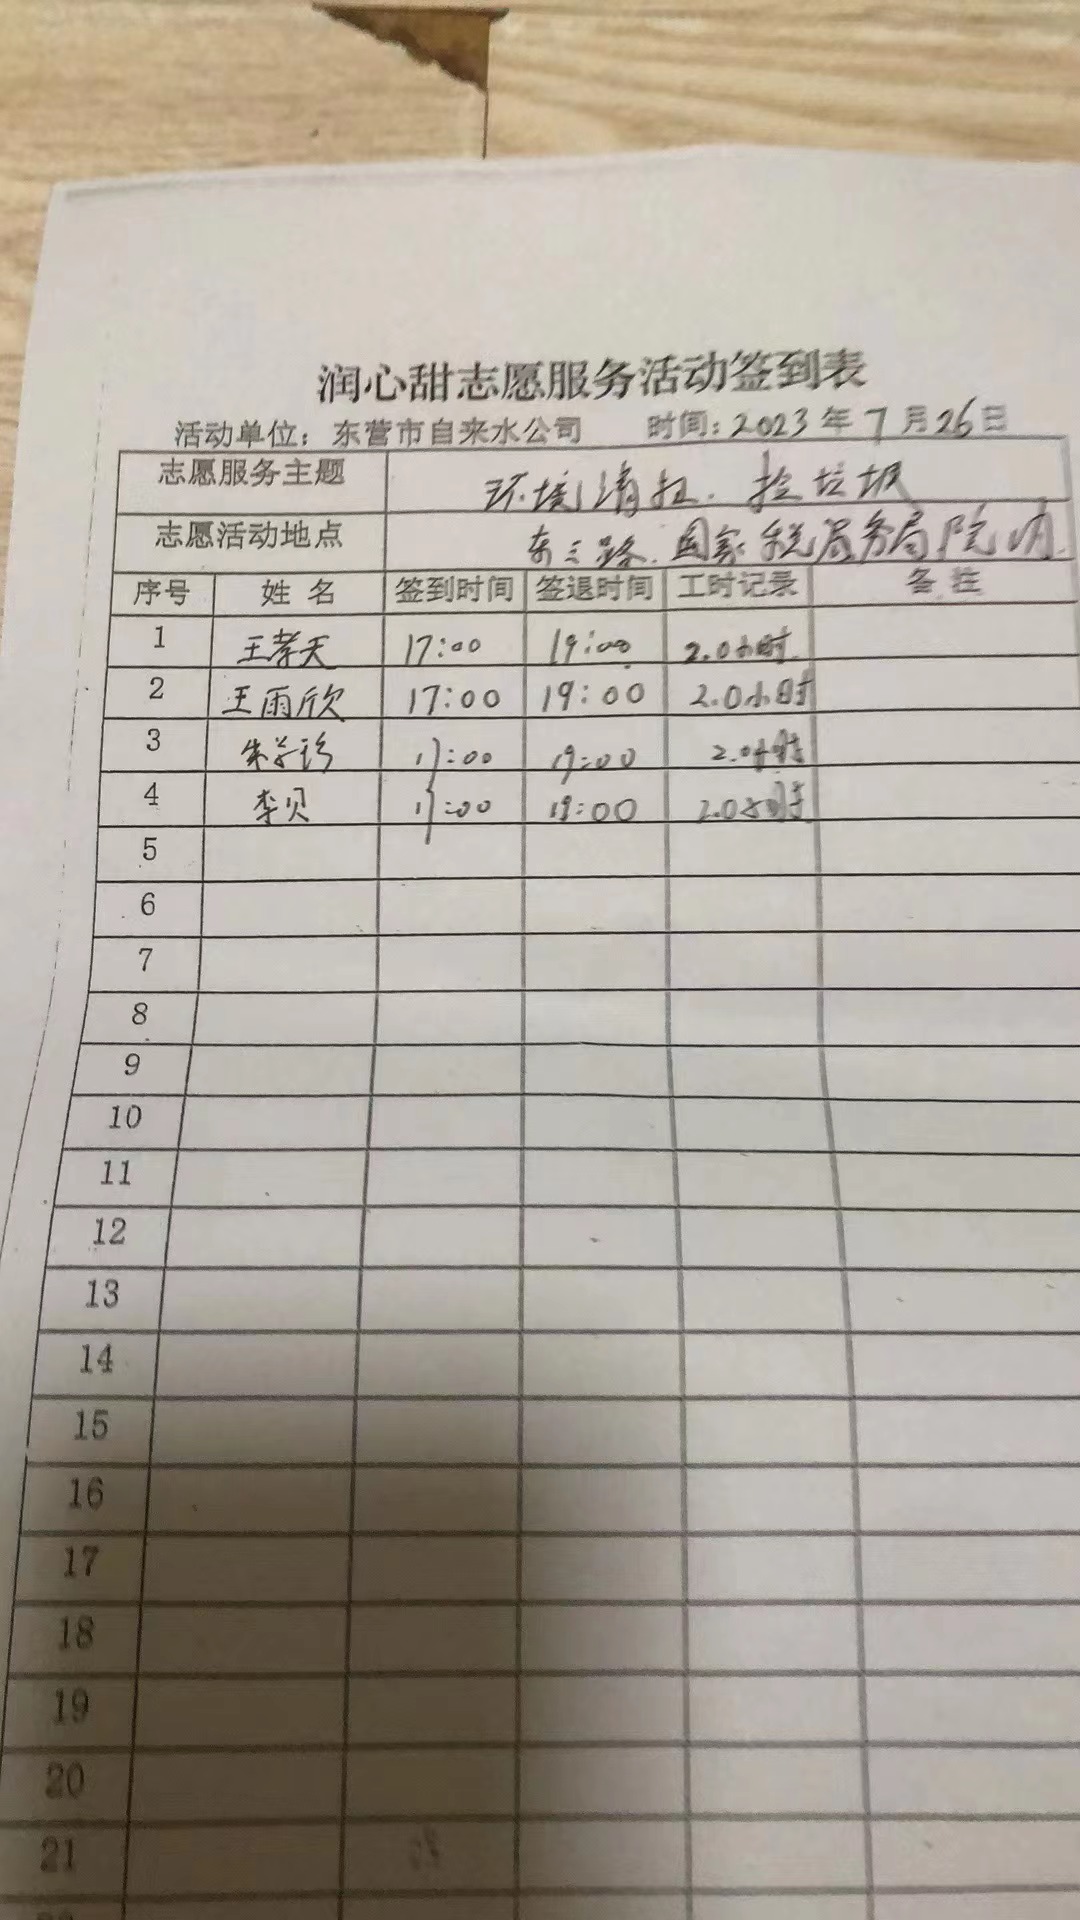 润心甜志愿服务活动签到表
活动单位：东营市自来水公司 时间：2023年7月26日
志愿服务主题 环境清扫、捡垃圾
志愿活动地点 东三路、国家税务局院内
序号 姓名 签到时间 签退时间 工时记录 备注
1 王孝天 17:00 19:00 2.0小时
2 王雨欣 17:00 19:00 2.0小时
3 17:00 19:00 2.0小时
4 李贝 17:00 19:00 2.0小时
5
6
7
8
9
10
11
12
13
14
15
16
17
18
19
20
21